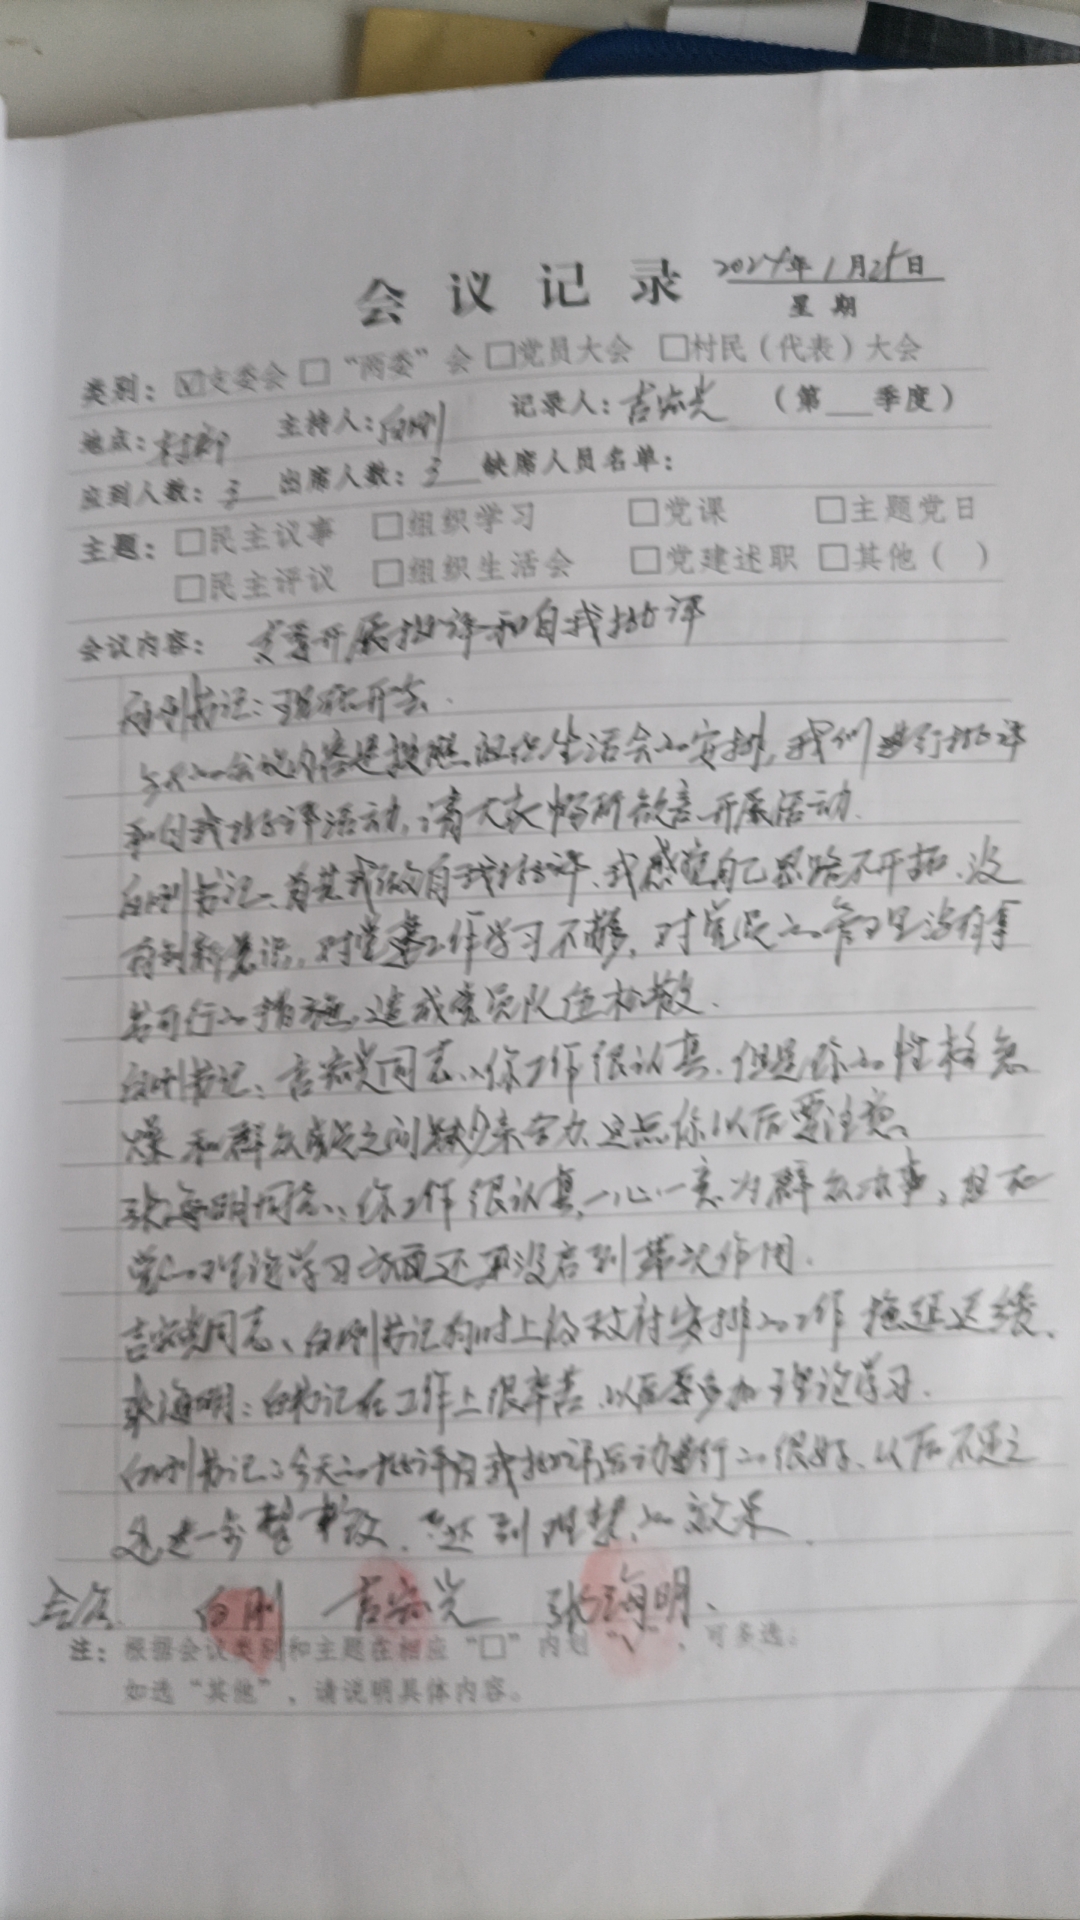 会议记录 2024年1月25日
星期
类别：☑支委会 □“两委”会 □党员大会 □村民（代表）大会
地点：村部 主持人：白刚 记录人：吉宏光 （第__季度）
应到人数：3 出席人数：3 缺席人员名单：
主题：□民主议事 □组织学习 □党课 □主题党日
□民主评议 □组织生活会 □党建述职 □其他（ ）
会议内容：支委开展批评和自我批评
白刚书记：现在开会.
今天的会议内容是按照组织生活会的安排，我们进行批评
和自我批评活动，请大家畅所欲言开展活动.
白刚书记、首先我做自我批评、我感觉自己思路不开拓、没
有创新意识，对党建工作学习不够，对党员的管理没有拿
出可行的措施，造成党员队伍松散.
白刚书记：吉宏光同志、你工作很认真、但是你的性格急
燥和群众成员之间缺少亲和力、这点你以后要注意、
张海明同志：你工作很认真，一心一意为群众办事，但在
党的理论学习方面还没启到带头作用.
吉宏光同志、白刚书记对上级政府安排的工作拖延迟缓、
张海明：白书记在工作上很辛苦、以后要多加理论学习.
白刚书记：今天的批评自我批评活动进行的很好、以后不足之
处进一步整改、达到理想的效果.
白刚 吉宏光 张海明、
注：根据会议类别和主题在相应“□”内划“√”，可多选；
如选“其他”，请说明具体内容。